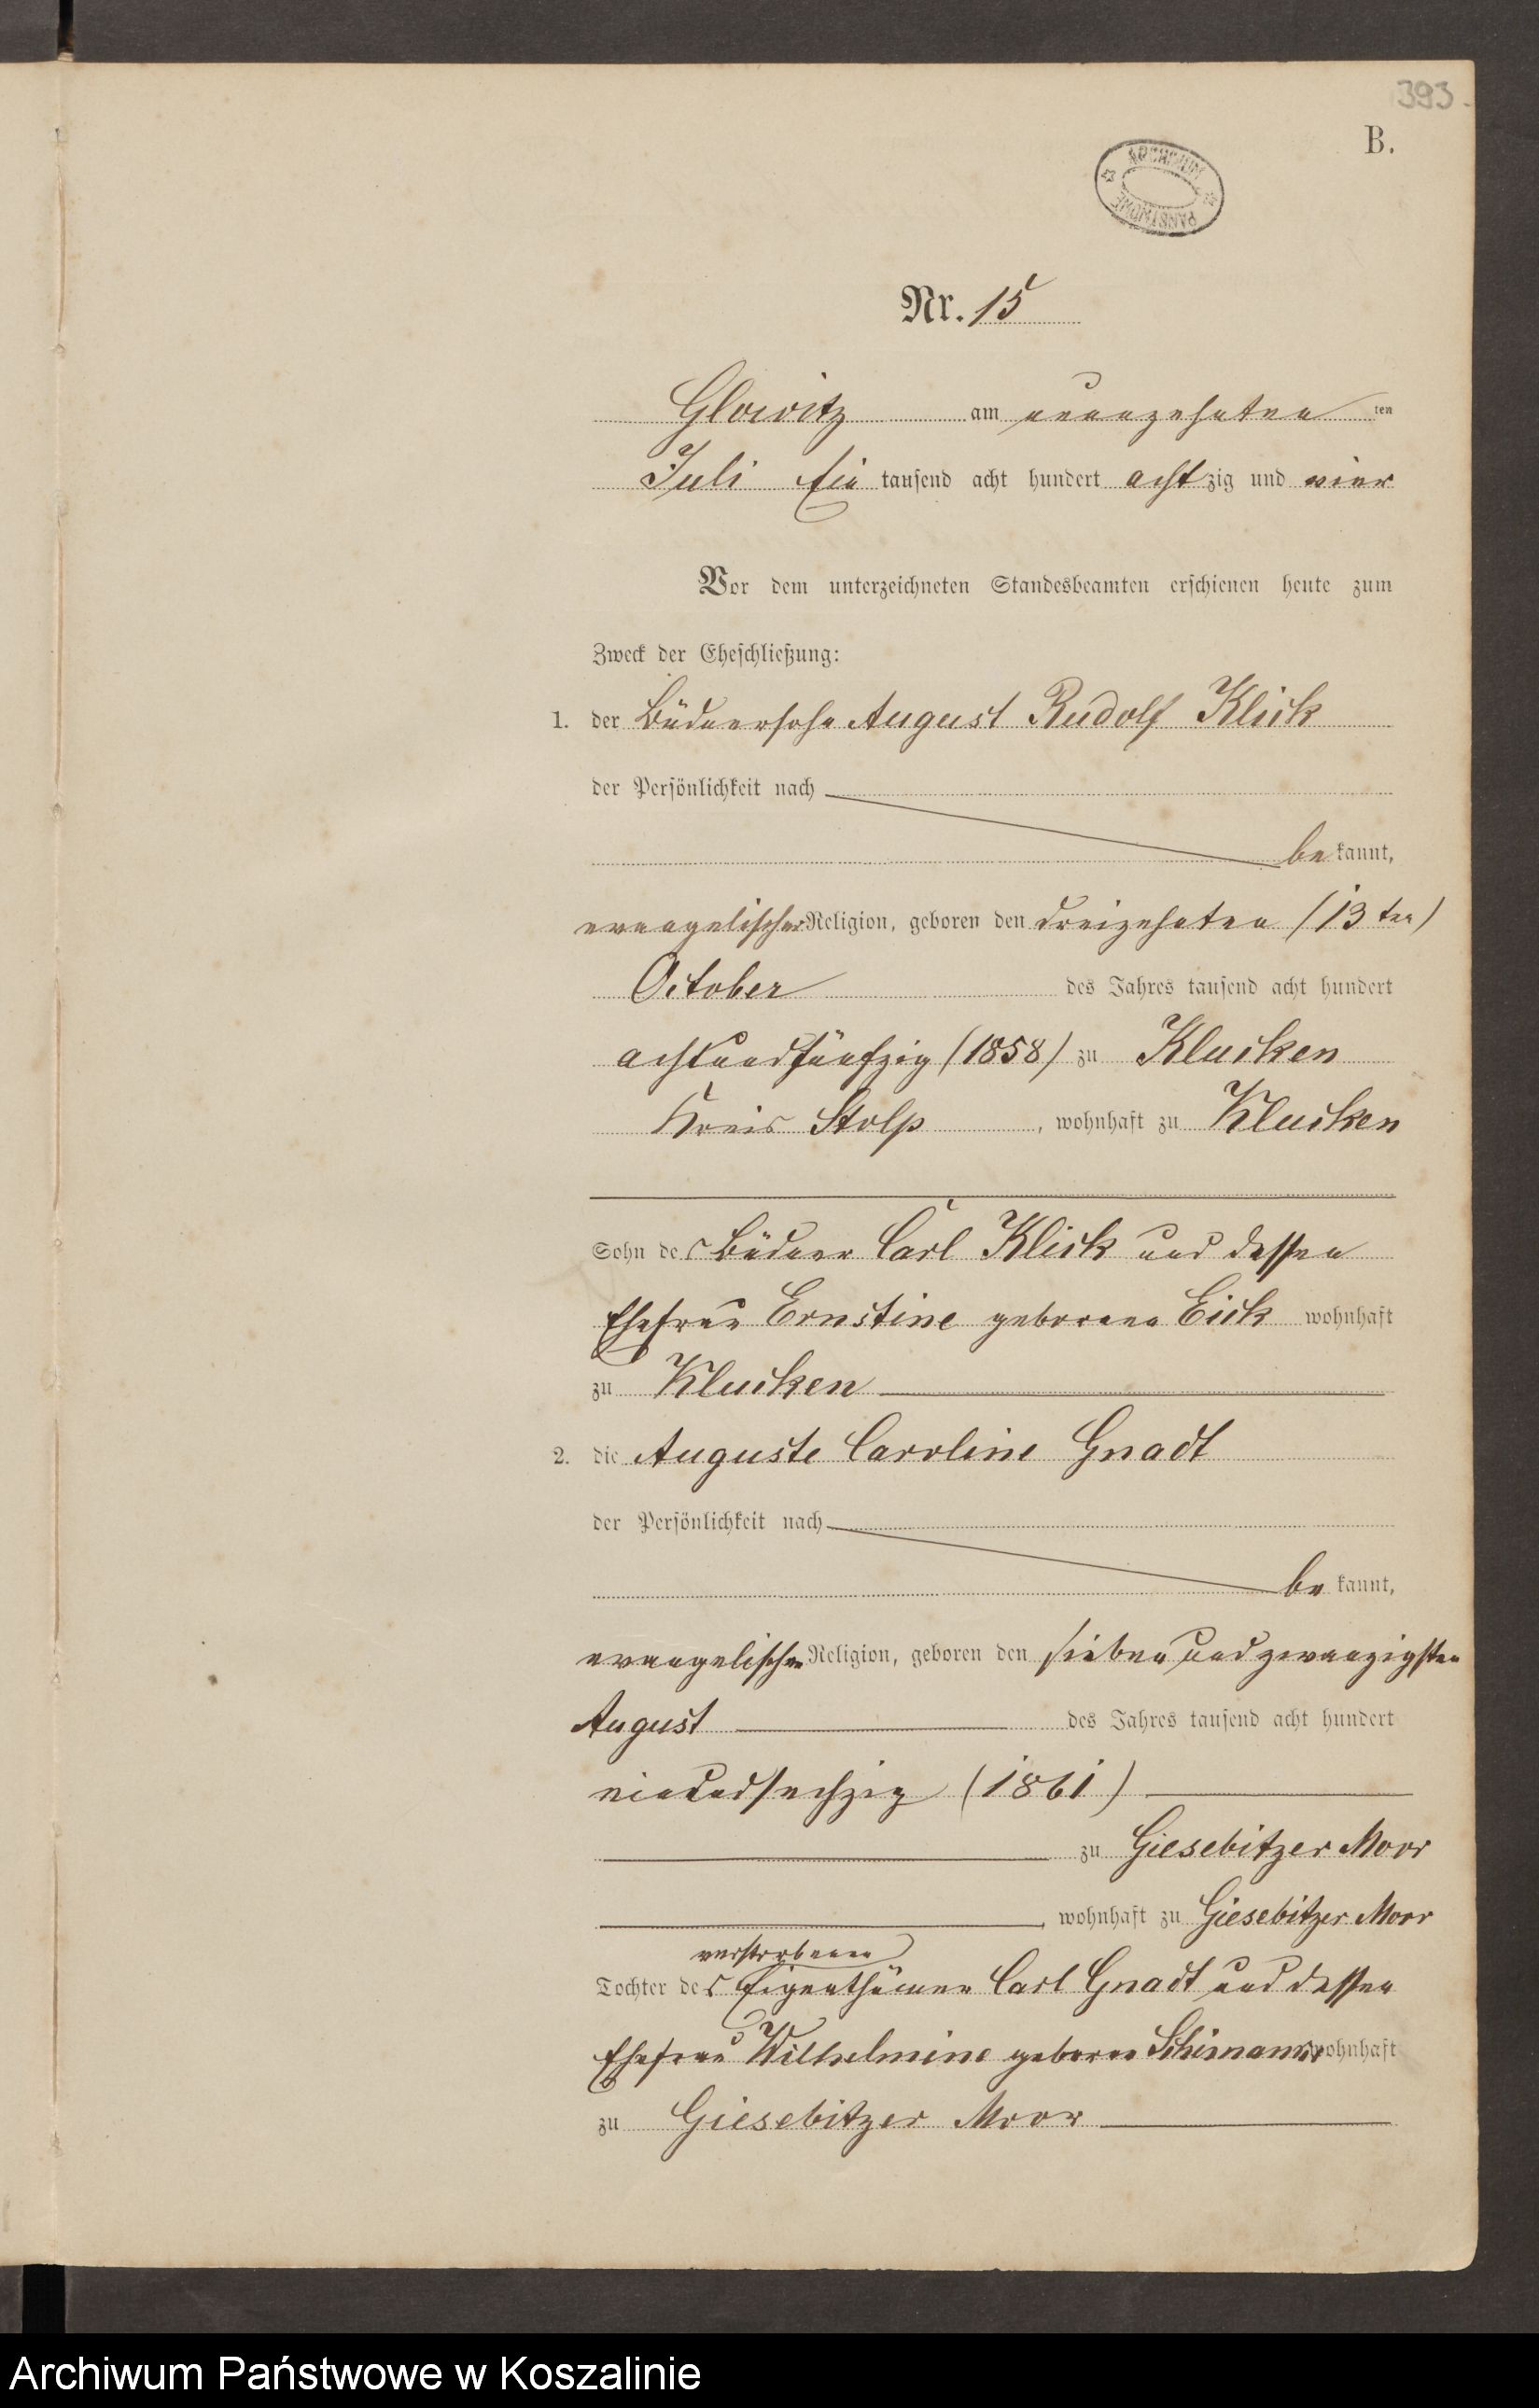 393.
B.
ARCHIWUM PAŃSTWOWE
Nr. 15
Glowitz am neunzehnten ten
Juli Ein tausend acht hundert achtzig und vier
Vor dem unterzeichneten Standesbeamten erschienen heute zum
Zweck der Eheschließung:
1. der Büdnersohn August Rudolf Klick
der Persönlichkeit nach
be kannt,
evangelischer Religion, geboren den dreizehnten (13ten)
October des Jahres tausend acht hundert
achtundfünfzig (1858) zu Klucken
Kreis Stolp, wohnhaft zu Klucken
Sohn des Büdner Carl Klick und dessen
Ehefrau Ernstine geborene Eick wohnhaft
zu Klucken
2. die Auguste Caroline Gnadt
der Persönlichkeit nach
be kannt,
evangelischen Religion, geboren den siebenundzwanzigsten
August des Jahres tausend acht hundert
einundsechzig (1861)
zu Giesebitzer Moor
, wohnhaft zu Giesebitzer Moor
verstorbenen
Tochter des Eigenthümer Carl Gnadt und dessen
Ehefrau Wilhelmine geborne wohnhaft
zu Giesebitzer Moor
Archiwum Państwowe w Koszalinie